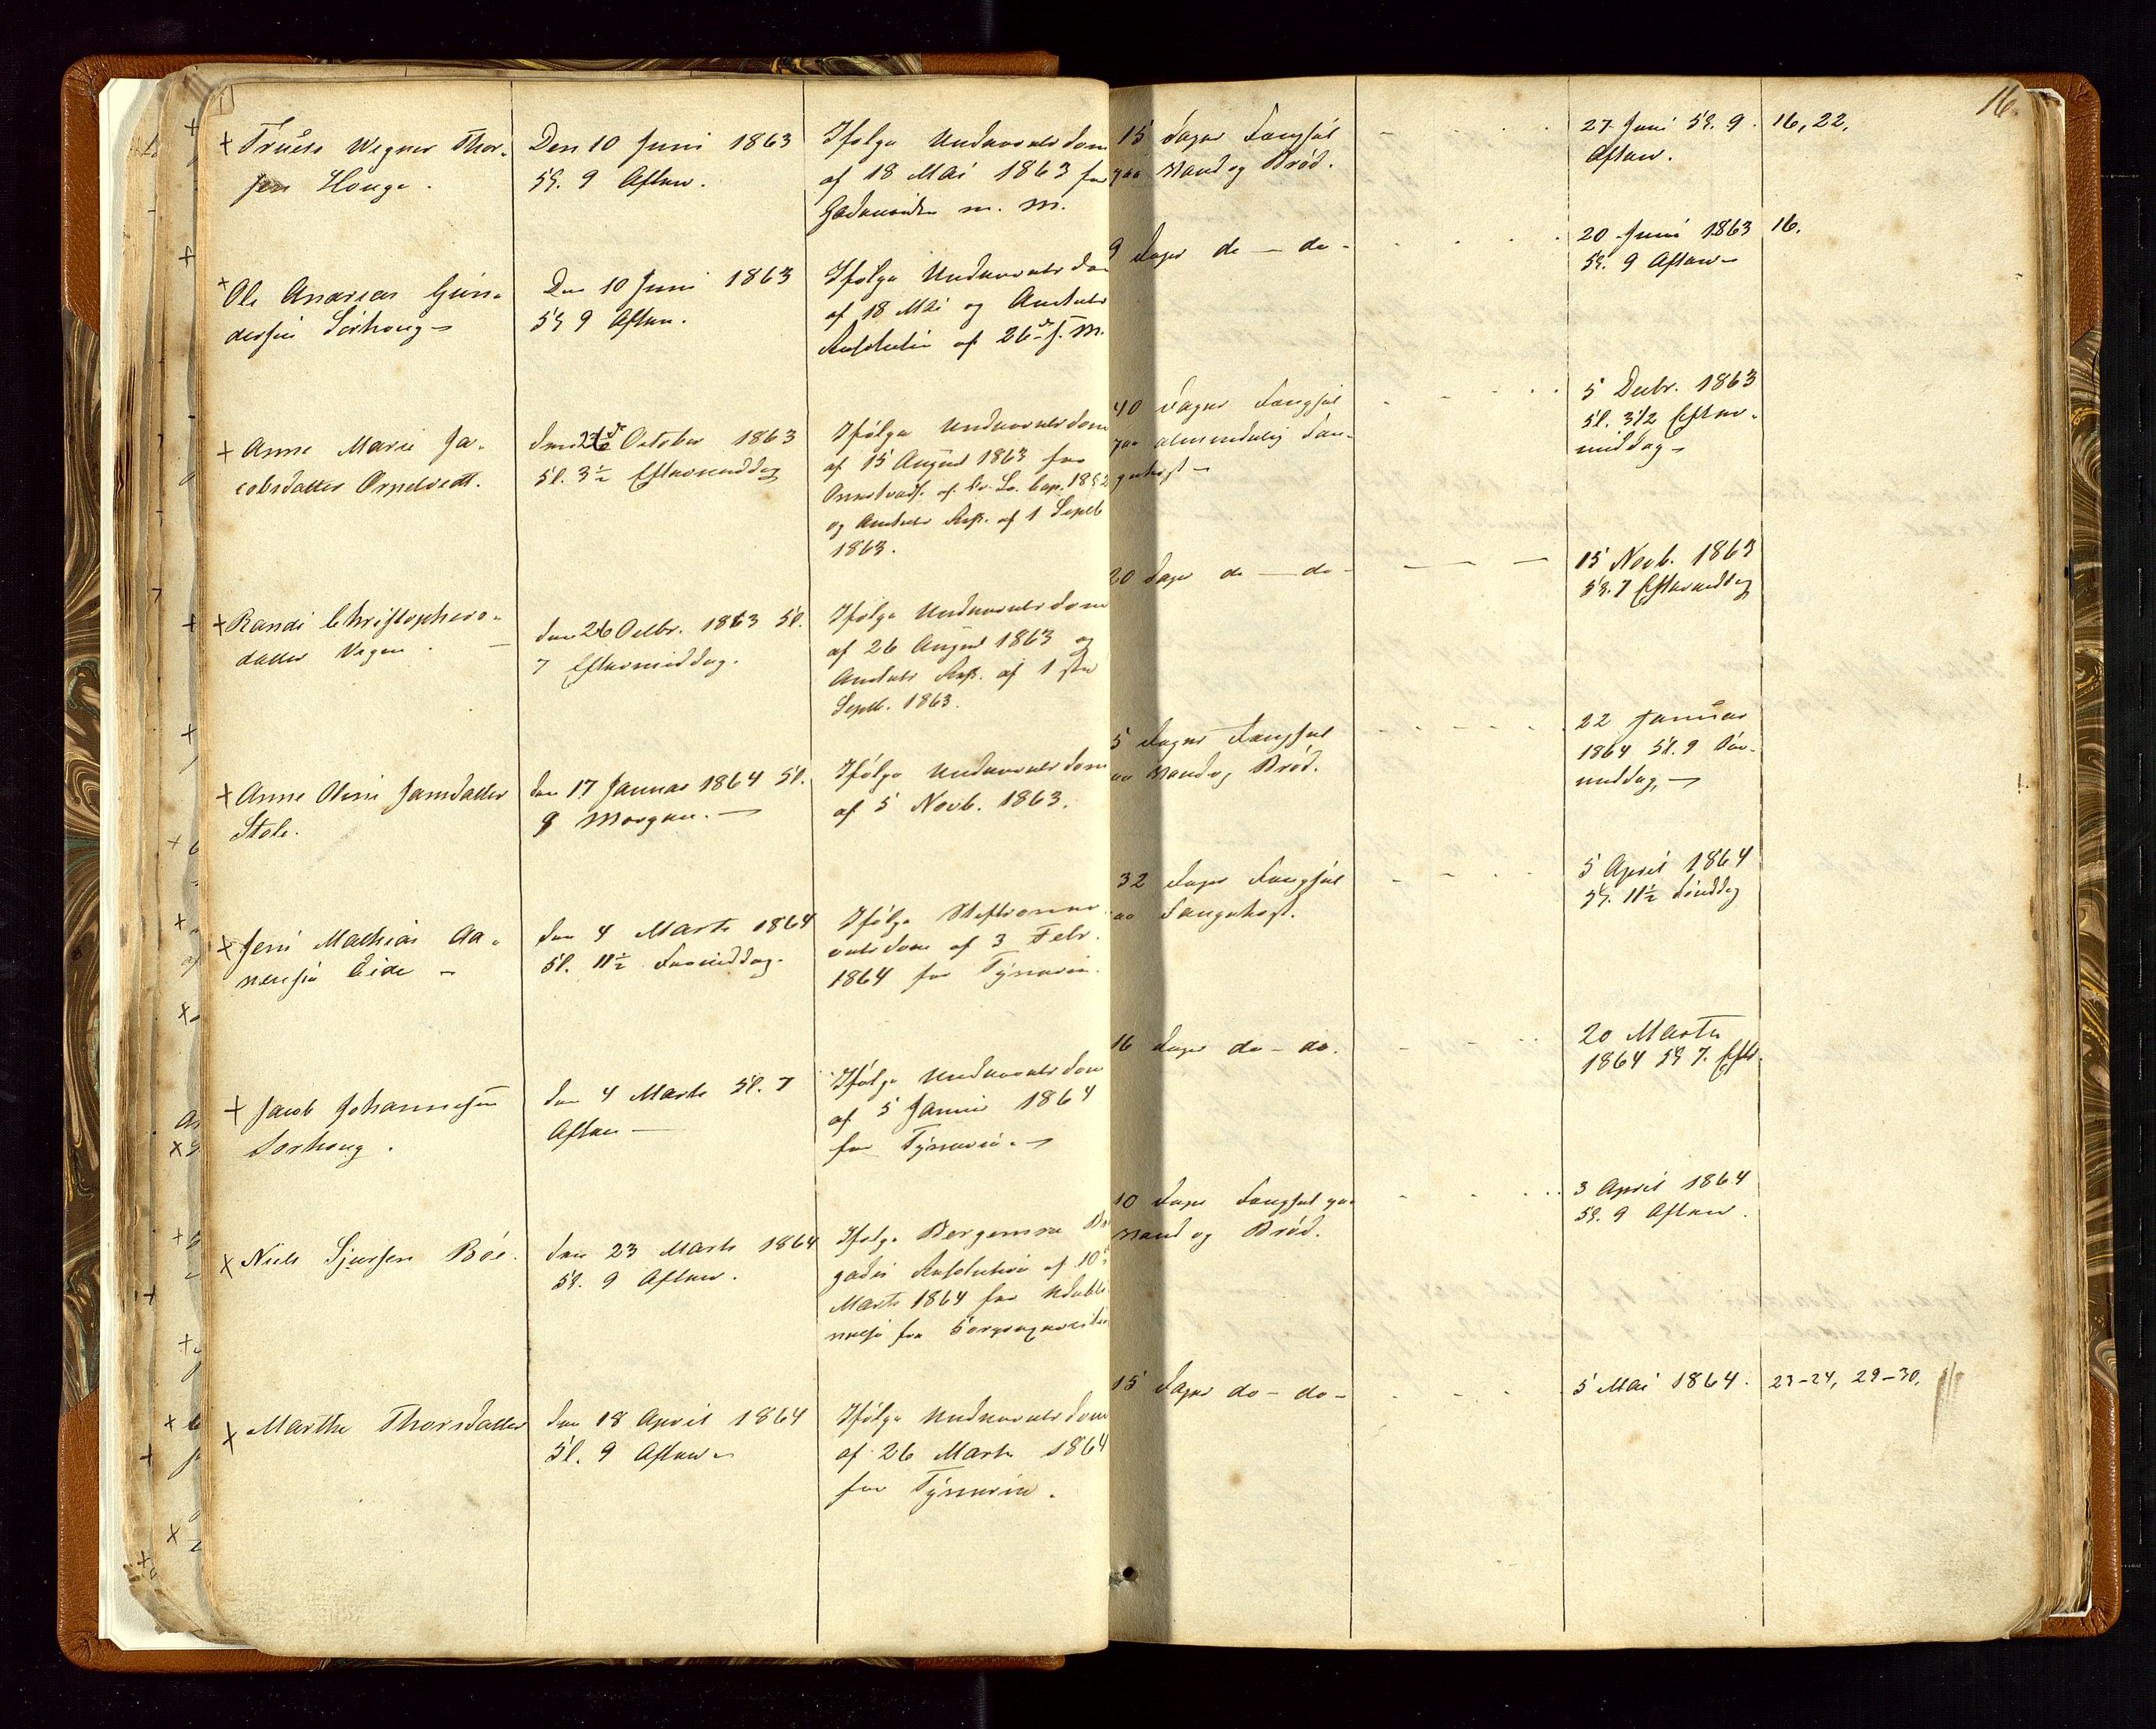 16.
+ Truels Wegner Thor-
sen Houge.
Den 10 Juni 1863
Kl. 9 Aften.
Ifølge Underretsdom
af 18 Mai 1863 for
m. M.
15 Dages Fængsel
paa Vand og Brød.
27 Juni Kl. 9
Aften.
16, 22.
+ Ole Andreas Gun-
dersen Sørhoug
Den 10 Juni 1863
Kl 9 Aften.
Ifølge Underretsdom
af 18 Mai og Amtets
Resolution af 26de s. M.
9 Dages do — do -
20 Juni 1863
Kl. 9 Aften
16.
+ Anne Marie Ja-
cobsdatter
den 26de October 1863
Kl. 3½ Eftermiddag
Ifølge Underretsdom
af 15 August 1863 for
og Amtets Res. af 1 Septb
1863.
40 Dages Fængsel
paa almindelig Fan-
gekost
5 Decbr. 1863
Kl. 3½ Efter-
middag
+ Randi Christophers-
datter Vegen.
den 26 Octbr. 1863 Kl.
7 Eftermiddag.
Ifølge Underretsdom
af 26 August 1863 og
Amtets Res. af 1ste
Septb. 1863.
20 Dage do — do -
15 Novb. 1863
Kl. 7 Eftermiddag
+ Anne Oline Jansdatter
Stole.
den 17 Januar 1864 Kl.
9 Morgen.
Ifølge Underretsdom
af 5 Novb. 1863.
5 Dages Fængsel
paa Vand og Brød.
22 Januar
1864 Kl. 9 For-
middag
+ Jens Mathias Aa-
nensen Eide
den 4 Marts 1864
Kl. 11½ Formiddag.
Ifølge Stiftsover-
retsdom af 3 Febr.
1864 for Tyveri.
32 Dages Fængsel
paa Fangekost.
5 April 1864
Kl. 11½ Formddg
+ Jacob Johannesen
Sørhoug.
den 4 Marts Kl. 7
Aften —
Ifølge Underretsdom
af 5 Januar 1864
for Tyveri.
16 Dages do - do.
20 Marts
1864 Kl 7. Eftr.
+ Niels Sjursen Bøe.
den 23 Marts 1864
Kl. 9 Aften.
Ifølge Bergenske Bri
gades Resolution af 10de
Marts 1864 for Udebli
velse fra
10 Dages Fængsel paa
Vand og Brød.
3 April 1864
Kl. 9 Aften.
+ Marthe Thorsdatter
den 18 April 1864
Kl. 9 Aften
Ifølge Underretsdom
af 26 Marts 1864
for Tyverie.
15 Dages do - do -
5 Mai 1864.
23-24, 29-30.